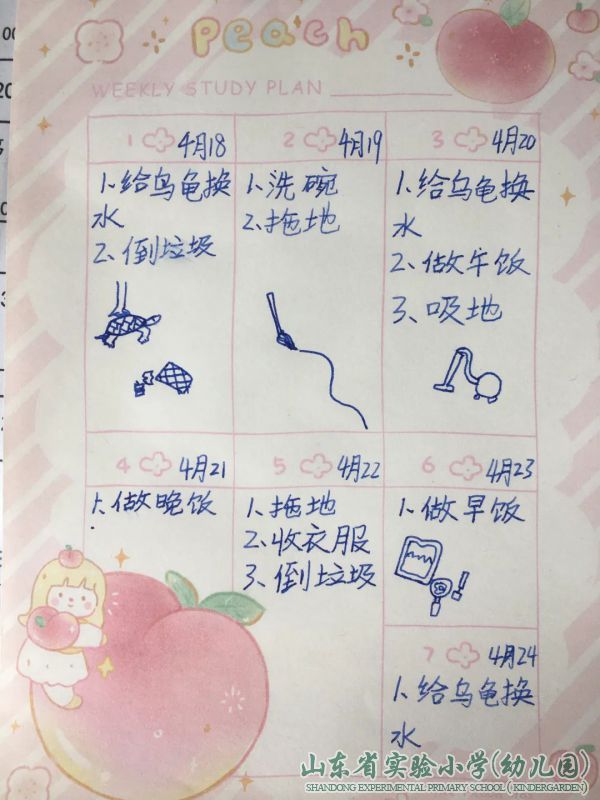 peach
WEEKLY STUDY PLAN
1 4月18
1、给乌龟换
水
2、倒垃圾
2 4月19
1、洗碗
2、拖地
3 4月20
1、给乌龟换
水
2、做午饭
3、吸地
4 4月21
1、做晚饭
5 4月22
1、拖地
2、收衣服
3、倒垃圾
6 4月23
1、做早饭
7 4月24
1、给乌龟换
水
山东省实验小学(幼儿园)
SHANDONG EXPERIMENTAL PRIMARY SCHOOL ( KINDERGARDEN)